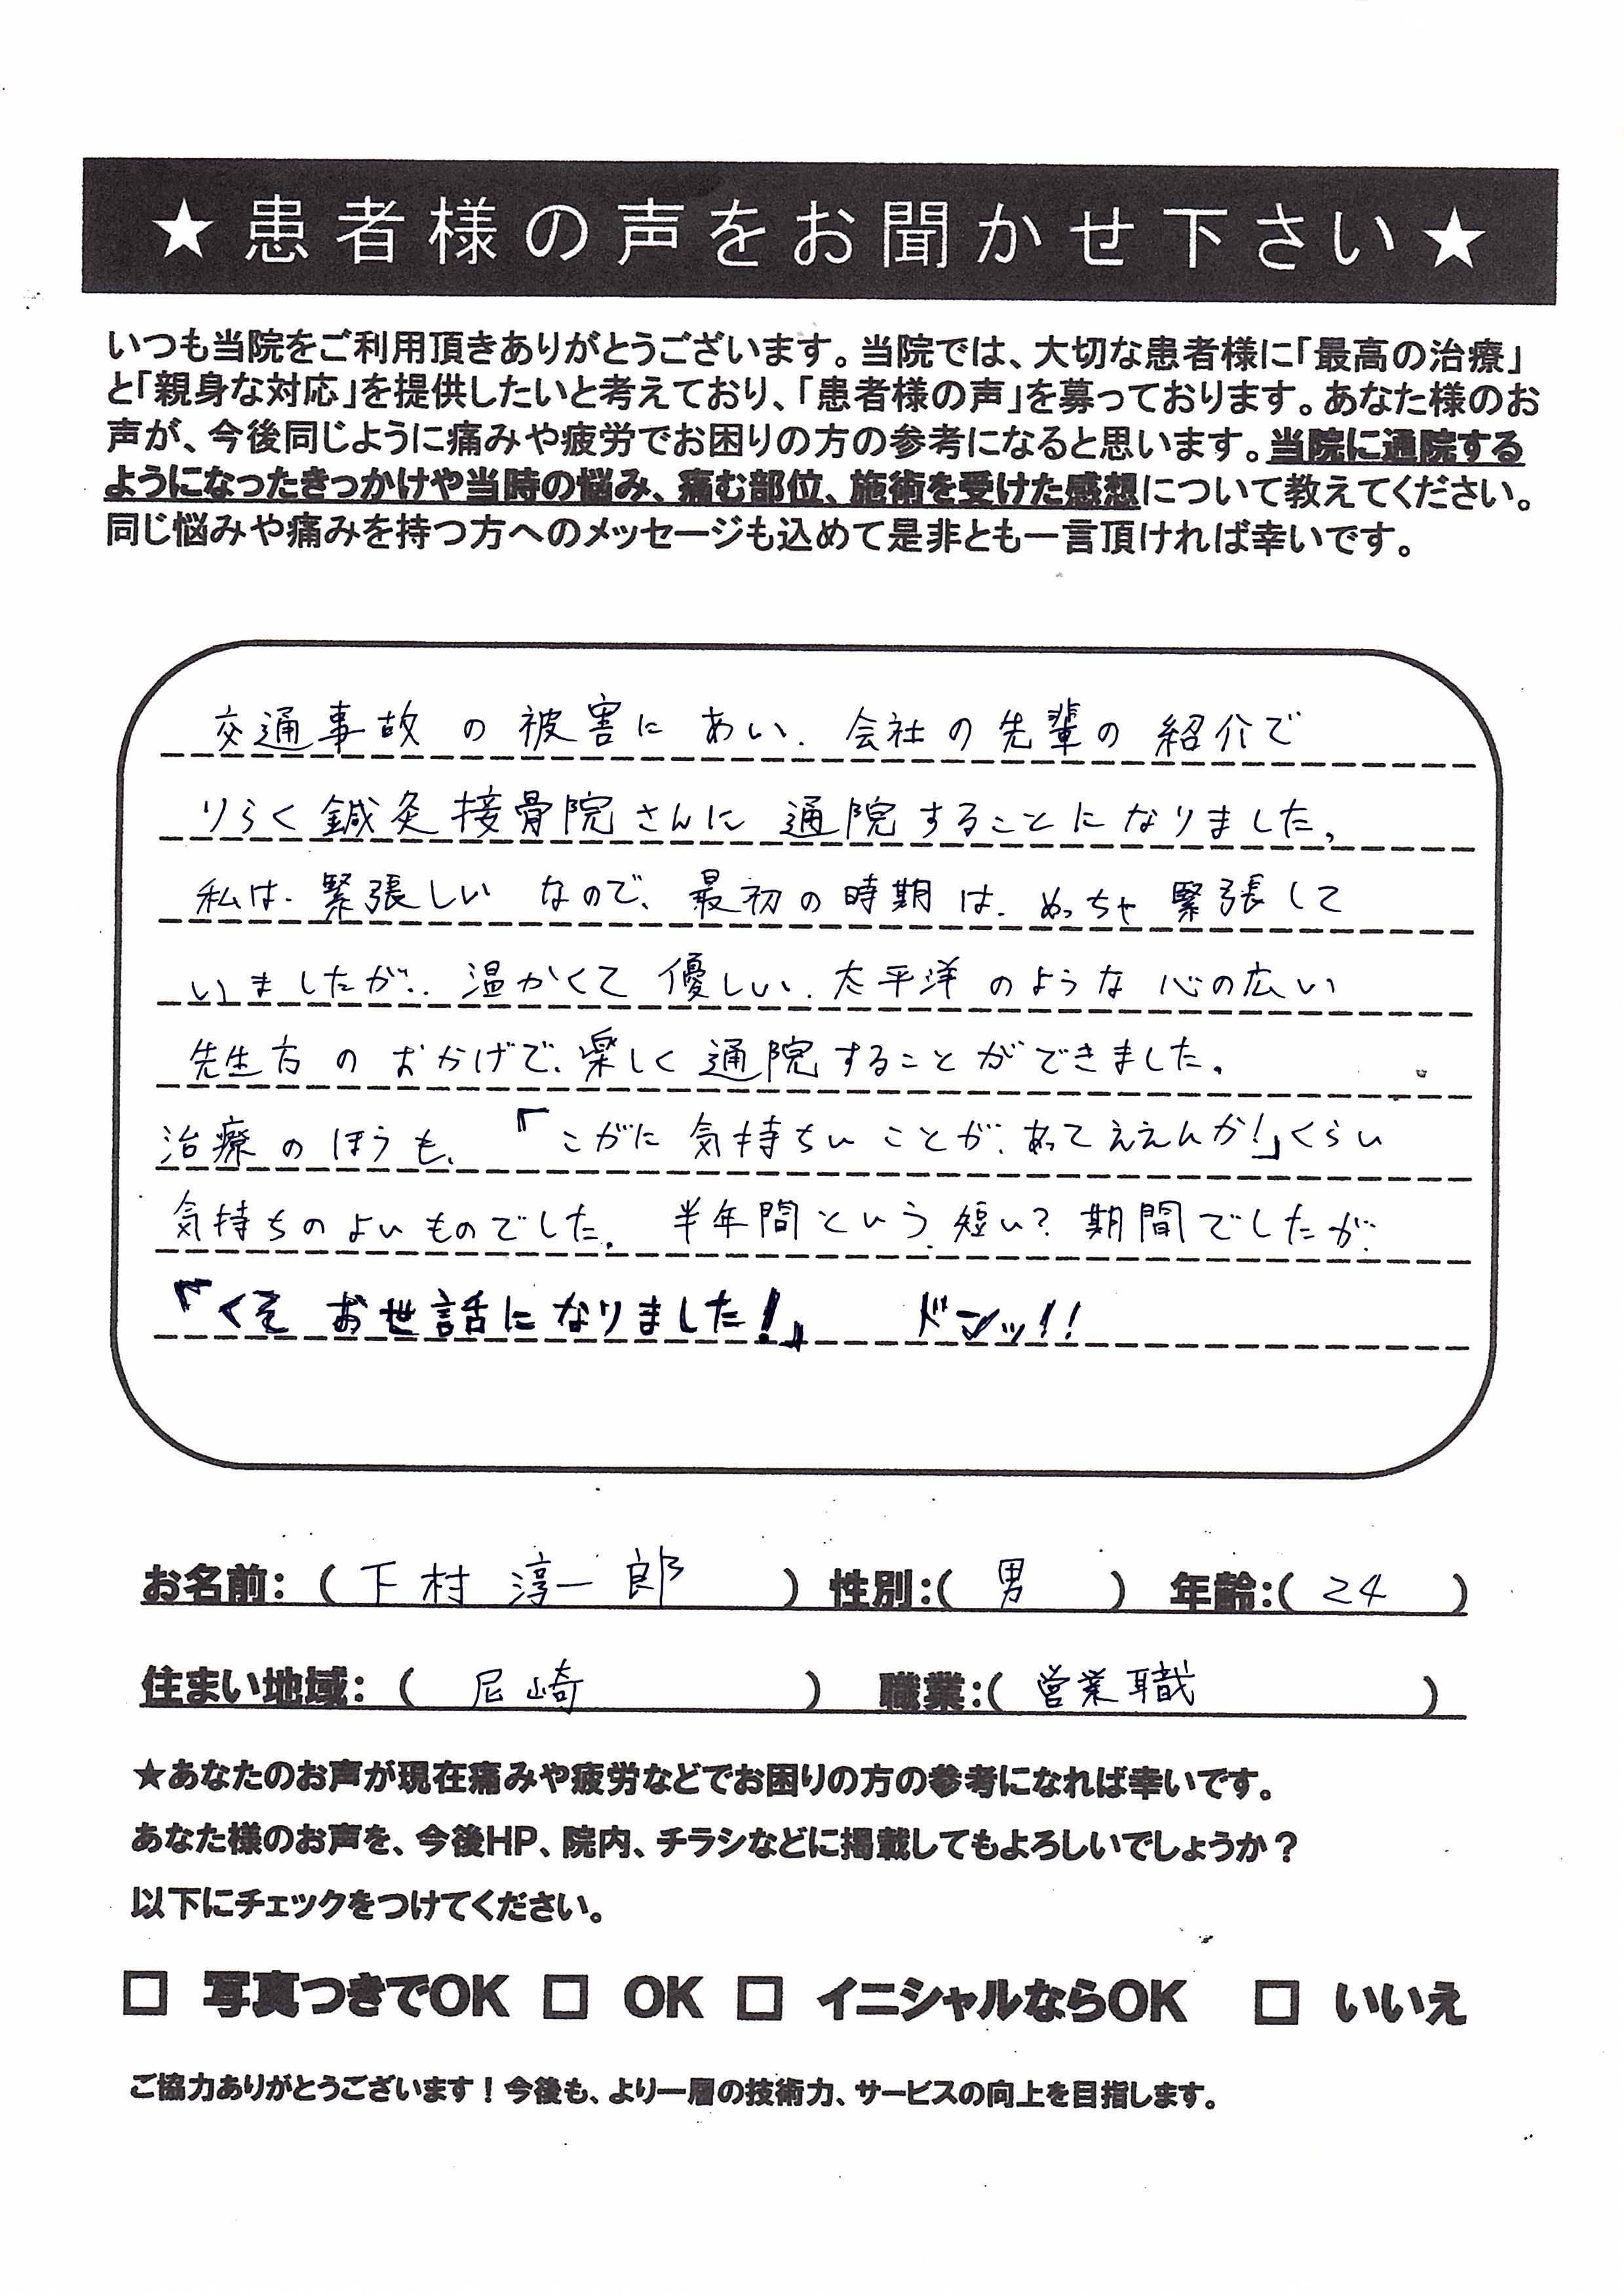 ★患者様の声をお聞かせ下さい★
いつも当院をご利用頂きありがとうございます。当院では、大切な患者様に「最高の治療」
と「親身な対応」を提供したいと考えており、「患者様の声」を募っております。あなた様のお
声が、今後同じように痛みや疲労でお困りの方の参考になると思います。当院に通院する
ようになったきっかけや当時の悩み、痛む部位、施術を受けた感想について教えてください。
同じ悩みや痛みを持つ方へのメッセージも込めて是非とも一言頂ければ幸いです。
交通事故の被害にあい、会社の先輩の紹介で
りらく鍼灸接骨院さんに通院することになりました。
私は、緊張しいなので、最初の時期は、めっちゃ緊張して
いましたが、温かくて優しい、太平洋のような心の広い
先生方のおかげで、楽しく通院することができました。
治療のほうも、「こがに気持ちいことが、あってええんか!」くらい
気持ちのよいものでした。半年間という、短い?期間でしたが、
「くそお世話になりました!」 ドンッ!!
お名前:(下村 淳一郎) 性別:(男) 年齢:(24)
住まい地域:(尼崎) 職業:(営業職)
★あなたのお声が現在痛みや疲労などでお困りの方の参考になれば幸いです。
あなた様のお声を、今後HP、院内、チラシなどに掲載してもよろしいでしょうか?
以下にチェックをつけてください。
□ 写真つきでOK □ OK □ イニシャルならOK □ いいえ
ご協力ありがとうございます!今後も、より一層の技術力、サービスの向上を目指します。